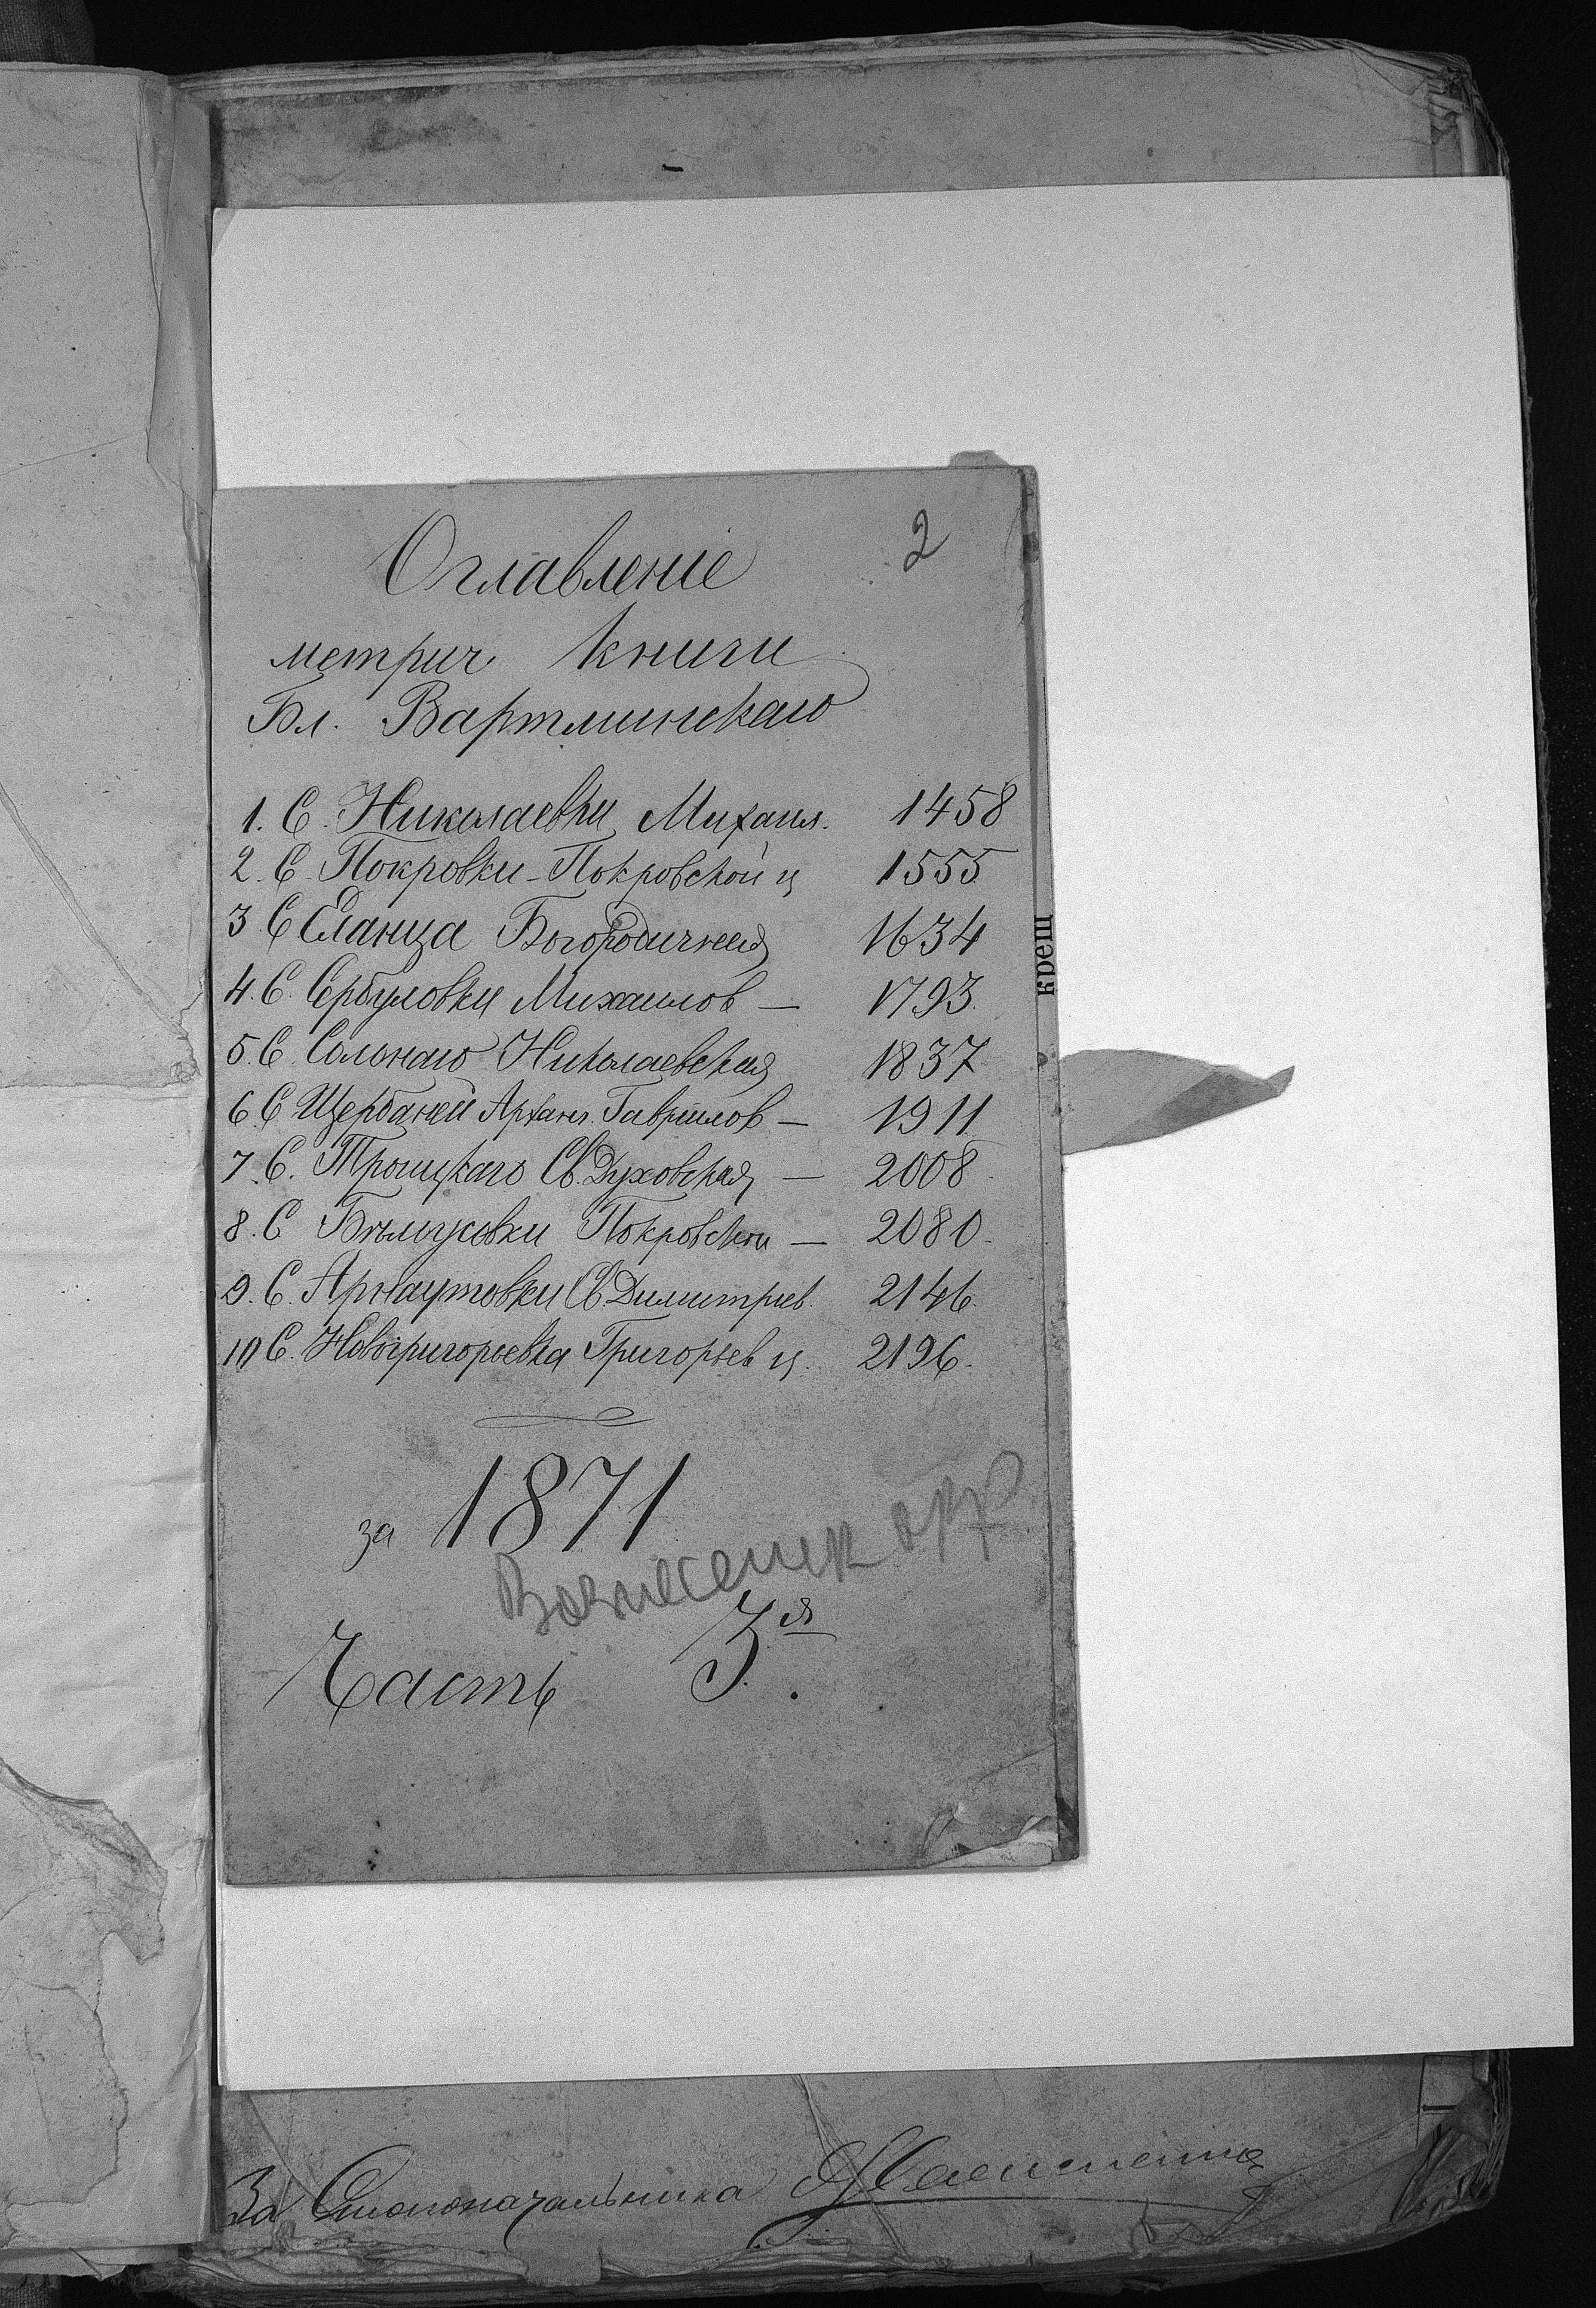 2
Оглавленіе
метрич. книги
Бл. Вартминскаго
1. С. Николаевки Михаил. 1458
2. С. Покровки - Покровской ц 1555
3 С Еланца Богородичная 1634
4. С. Сербуловки Михаилов — 1793.
5. С. Сольнаго Николаевская 1837
6 С Щербаней Архан. Гавриилов — 1911
7. С. Троицкаго Св. Духовская — 2008
8. С Бѣлоусовки Покровской — 2080.
9. С. Арнаутовки Св Димитріев. 2146.
10 С. Новогригорьевка Григорьев ц. 2196.
за 1871
Вознесенск
Часть 3я.
крещ
За Столоначальника